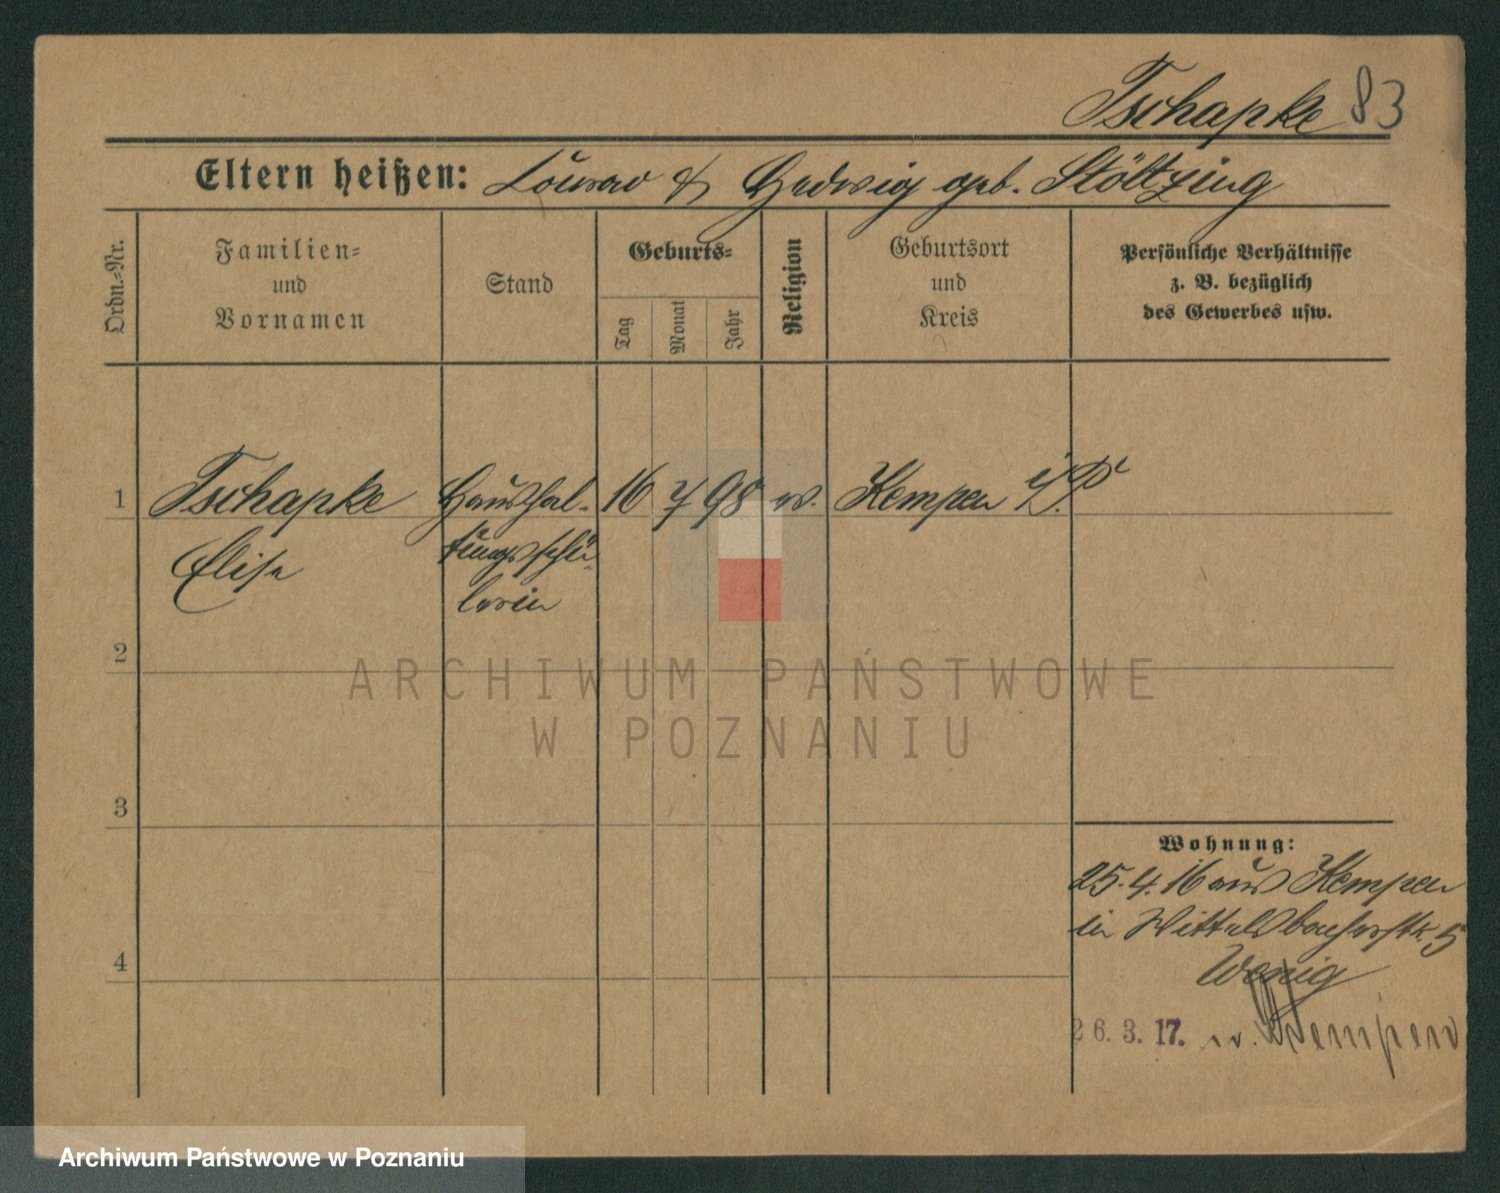 Tschapke 83
Eltern heißen: & Hedwig geb. Stöltzing
Ordn.-Nr.
Familien-
und
Vornamen
Stand
Geburts-
Tag
Monat
Jahr
Religion
Geburtsort
und
Kreis
Persönliche Verhältnisse
z. B. bezüglich
des Gewerbes usw.
1 Tschapke Haushal- 16 7 98 ev. Kempen i/P.
Elise tungsschü-
lerin
2
ARCHIWUM PAŃSTWOWE
W POZNANIU
3
Wohnung:
25.4.16 aus Kempen
in Wittelsbacherstr. 5
4
Wenig
26.3.17. n. Kempen
Archiwum Państwowe w Poznaniu